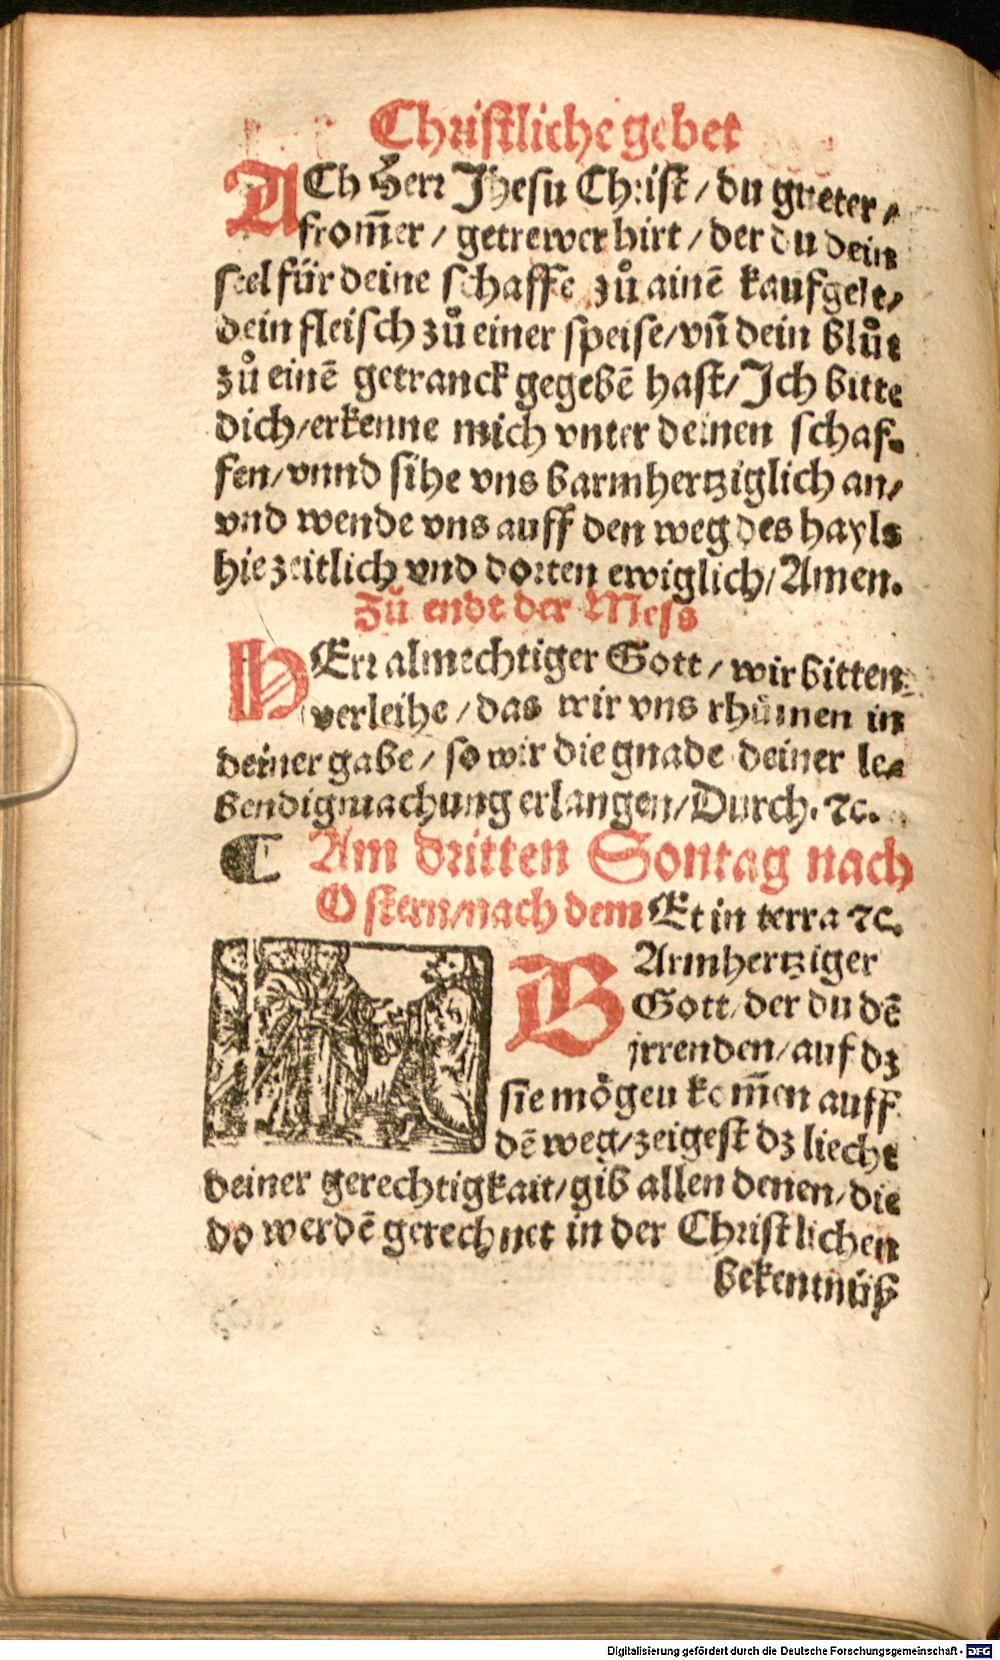 Christliche gebet
ACh Herr Jhesu Christ / du gueter /
from̃er / getrewer hirt / der du dein
seel für deine schaffe zů ainẽ kaufgelt /
dein fleisch zů einer speise / vñ dein blůt
zů einẽ getranck gegebẽ hast / Jch bitte
dich / erkenne mich vnter deinen schaf-
fen / vnnd sihe vns barmhertziglich an /
vnd wende vns auff den weg des hayls
hie zeitlich vnd dorten ewiglich / Amen.
Zů endt der Mess
HErr almechtiger Gott / wir bitten
verleihe / das wir vns rhümen in
deiner gabe / so wir die gnade deiner le-
bendigmachung erlangen / Durch. ⁊c.
¶ Am dritten Sontag nach
Ostern / nach dem Et in terra ⁊c.
BArmhertziger
Gott / der du dẽ
jrrenden / auf dz
sie mögen kom̃en auff
dẽ weg / zeigest dz liecht
deiner gerechtigkait / gib allen denen / die
do werdẽ gerechnet in der Christlichen
bekentnüß
Digitalisierung gefördert durch die Deutsche Forschungsgemeinschaft - DFG